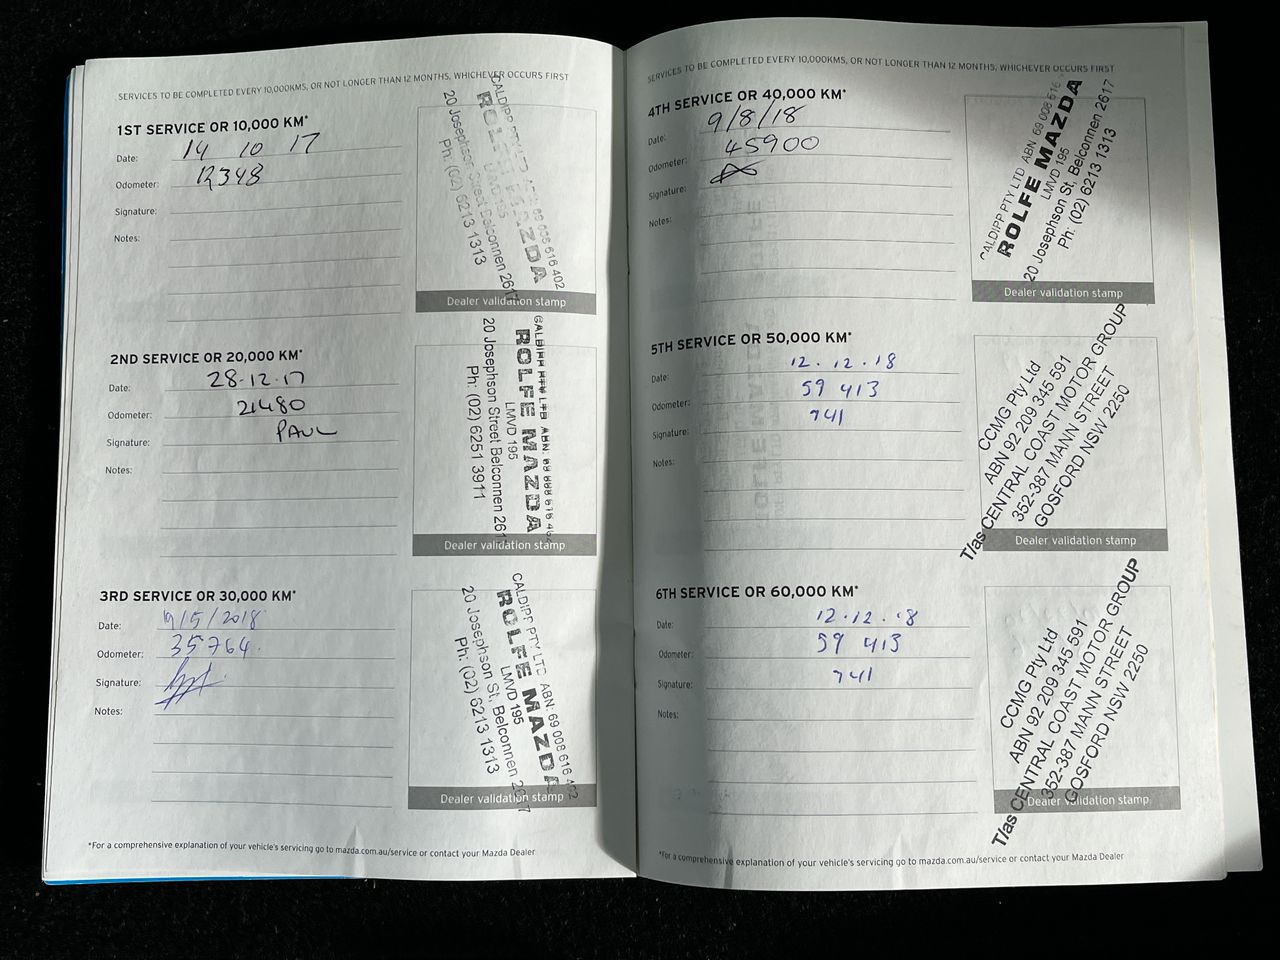 SERVICES TO BE COMPLETED EVERY 10,000KMS, OR NOT LONGER THAN 12 MONTHS, WHICHEVER OCCURS FIRST
1ST SERVICE OR 10,000 KM*
Date: 14 10 17
Odometer: 12348
Signature:
Notes:
CALDIPP PTY LTD ABN 69 008 616 402
ROLFE MAZDA
LMVD 195
20 Josephson Street Belconnen 2617
Ph: (02) 6213 1313
Dealer validation stamp
2ND SERVICE OR 20,000 KM*
Date: 28-12-17
Odometer: 21480
Signature: PAUL
Notes:
ROLFE MAZDA
LMVD 195
20 Josephson Street Belconnen 261
Ph: (02) 6251 3911
Dealer validation stamp
3RD SERVICE OR 30,000 KM*
Date: 9/5/2018
Odometer: 35764
Signature:
Notes:
CALDIPP PTY LTD ABN: 69 008 616 402
ROLFE MAZDA
LMVD 195
20 Josephson St, Belconnen 2617
Ph: (02) 6213 1313
Dealer validation stamp
*For a comprehensive explanation of your vehicle's servicing go to mazda.com.au/service or contact your Mazda Dealer
SERVICES TO BE COMPLETED EVERY 10,000KMS, OR NOT LONGER THAN 12 MONTHS, WHICHEVER OCCURS FIRST
4TH SERVICE OR 40,000 KM*
Date: 9/8/18
Odometer: 45900
Signature:
Notes:
CALDIPP PTY LTD ABN 69 008 616
ROLFE MAZDA
LMVD 195
20 Josephson St, Belconnen 2617
Ph: (02) 6213 1313
Dealer validation stamp
5TH SERVICE OR 50,000 KM*
Date: 12.12.18
Odometer: 59 413
Signature: 741
Notes:
CCMG Pty Ltd
ABN 92 209 345 591
T/as CENTRAL COAST MOTOR GROUP
352-387 MANN STREET
GOSFORD NSW 2250
Dealer validation stamp
6TH SERVICE OR 60,000 KM*
Date: 12.12.18
Odometer: 59 413
Signature: 741
Notes:
CCMG Pty Ltd
ABN 92 209 345 591
T/as CENTRAL COAST MOTOR GROUP
352-387 MANN STREET
GOSFORD NSW 2250
Dealer validation stamp
*For a comprehensive explanation of your vehicle's servicing go to mazda.com.au/service or contact your Mazda Dealer